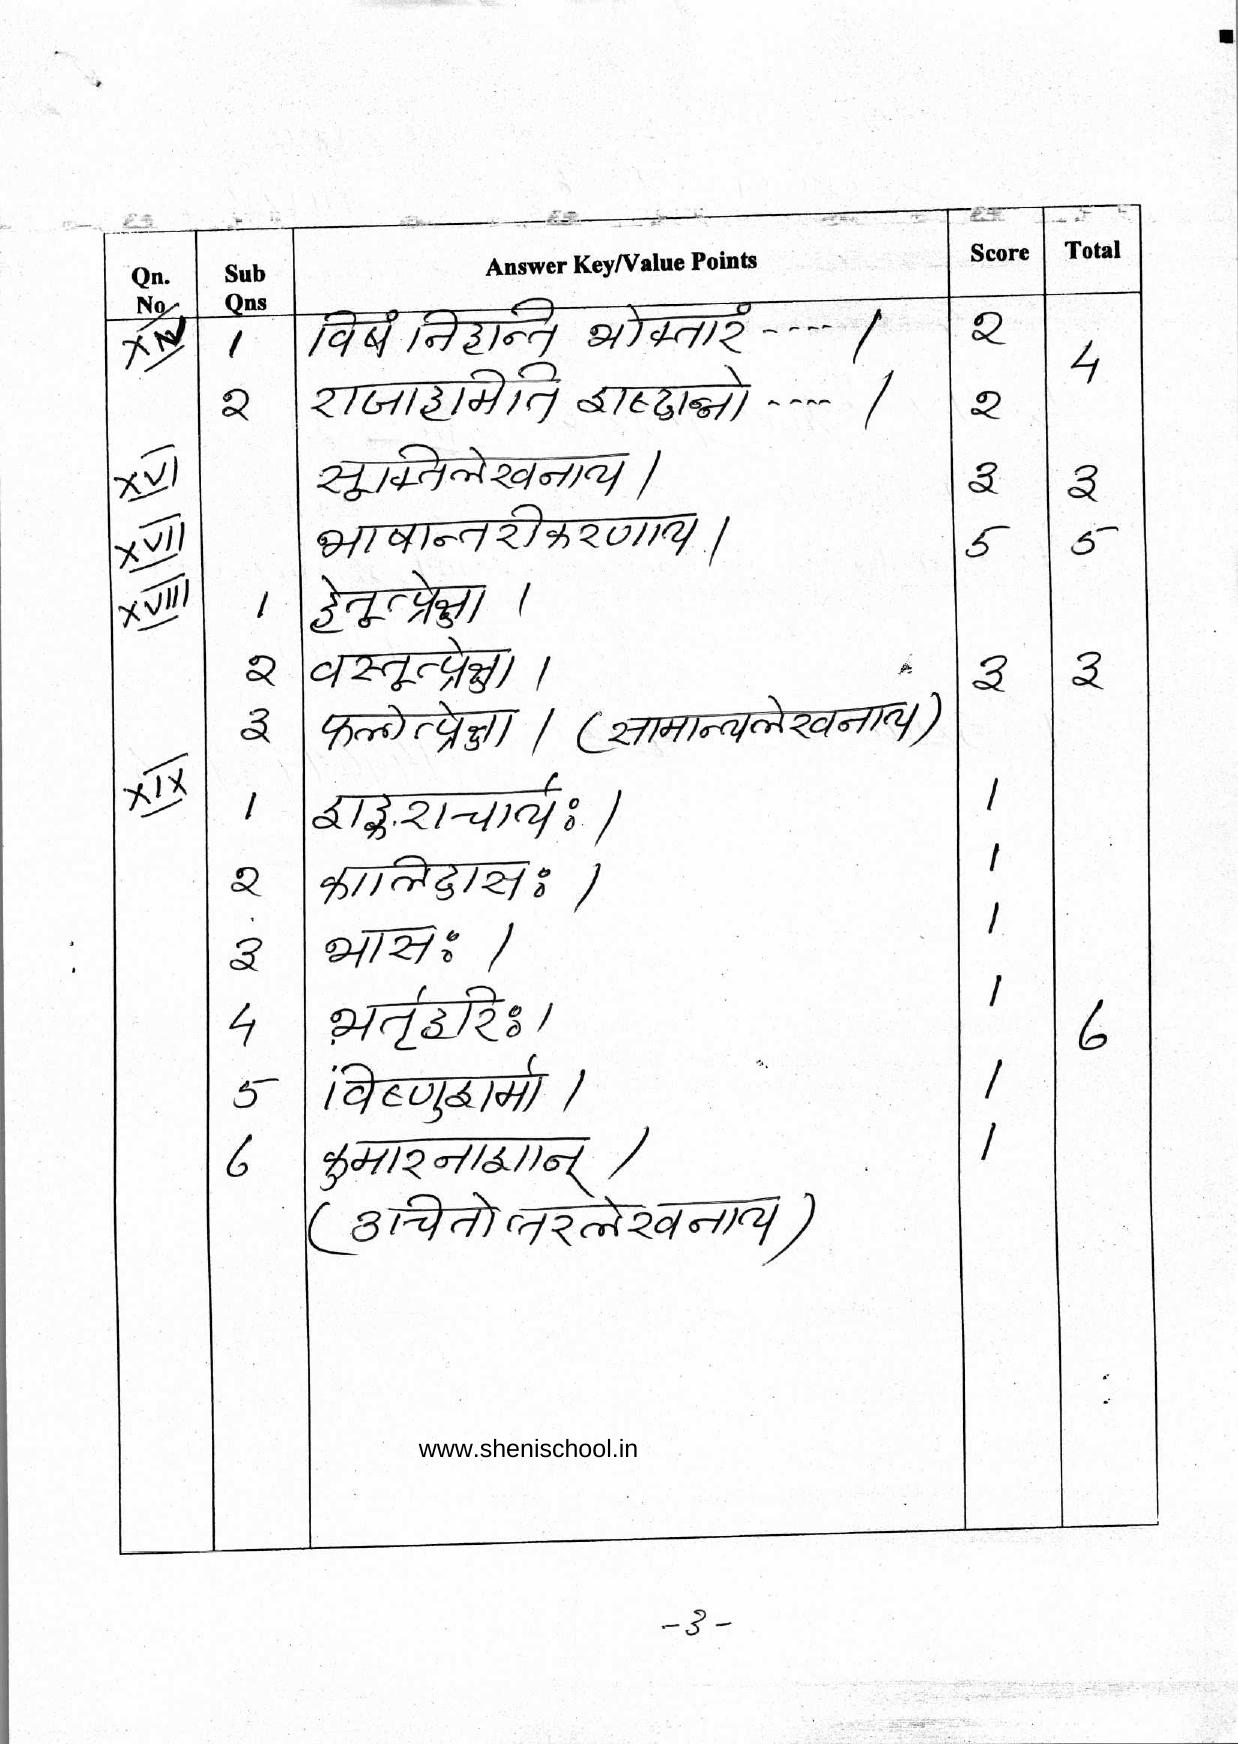 Qn. No. Sub Qns Answer Key/Value Points Score Total
XV 1 विषं निहन्ति भोक्तारं ---- । २ 4
२ राजाहमिति शब्दान्नो ---- । २
XVI सूक्तिलेखनाय । ३ ३
XVII भाषान्तरीकरणाय । 5 5
XVIII 1 हेतूत्प्रेक्षा ।
२ वस्तूत्प्रेक्षा । ३ ३
३ फलोत्प्रेक्षा । (सामान्यलेखनाय)
XIX 1 शङ्कराचार्यः । 1
२ कालिदासः । 1
३ भासः । 1
4 भर्तृहरिः । 1 6
5 विष्णुशर्मा । 1
6 कुमारनाशान् । 1
(उचितोत्तरलेखनाय)
www.shenischool.in
-3-